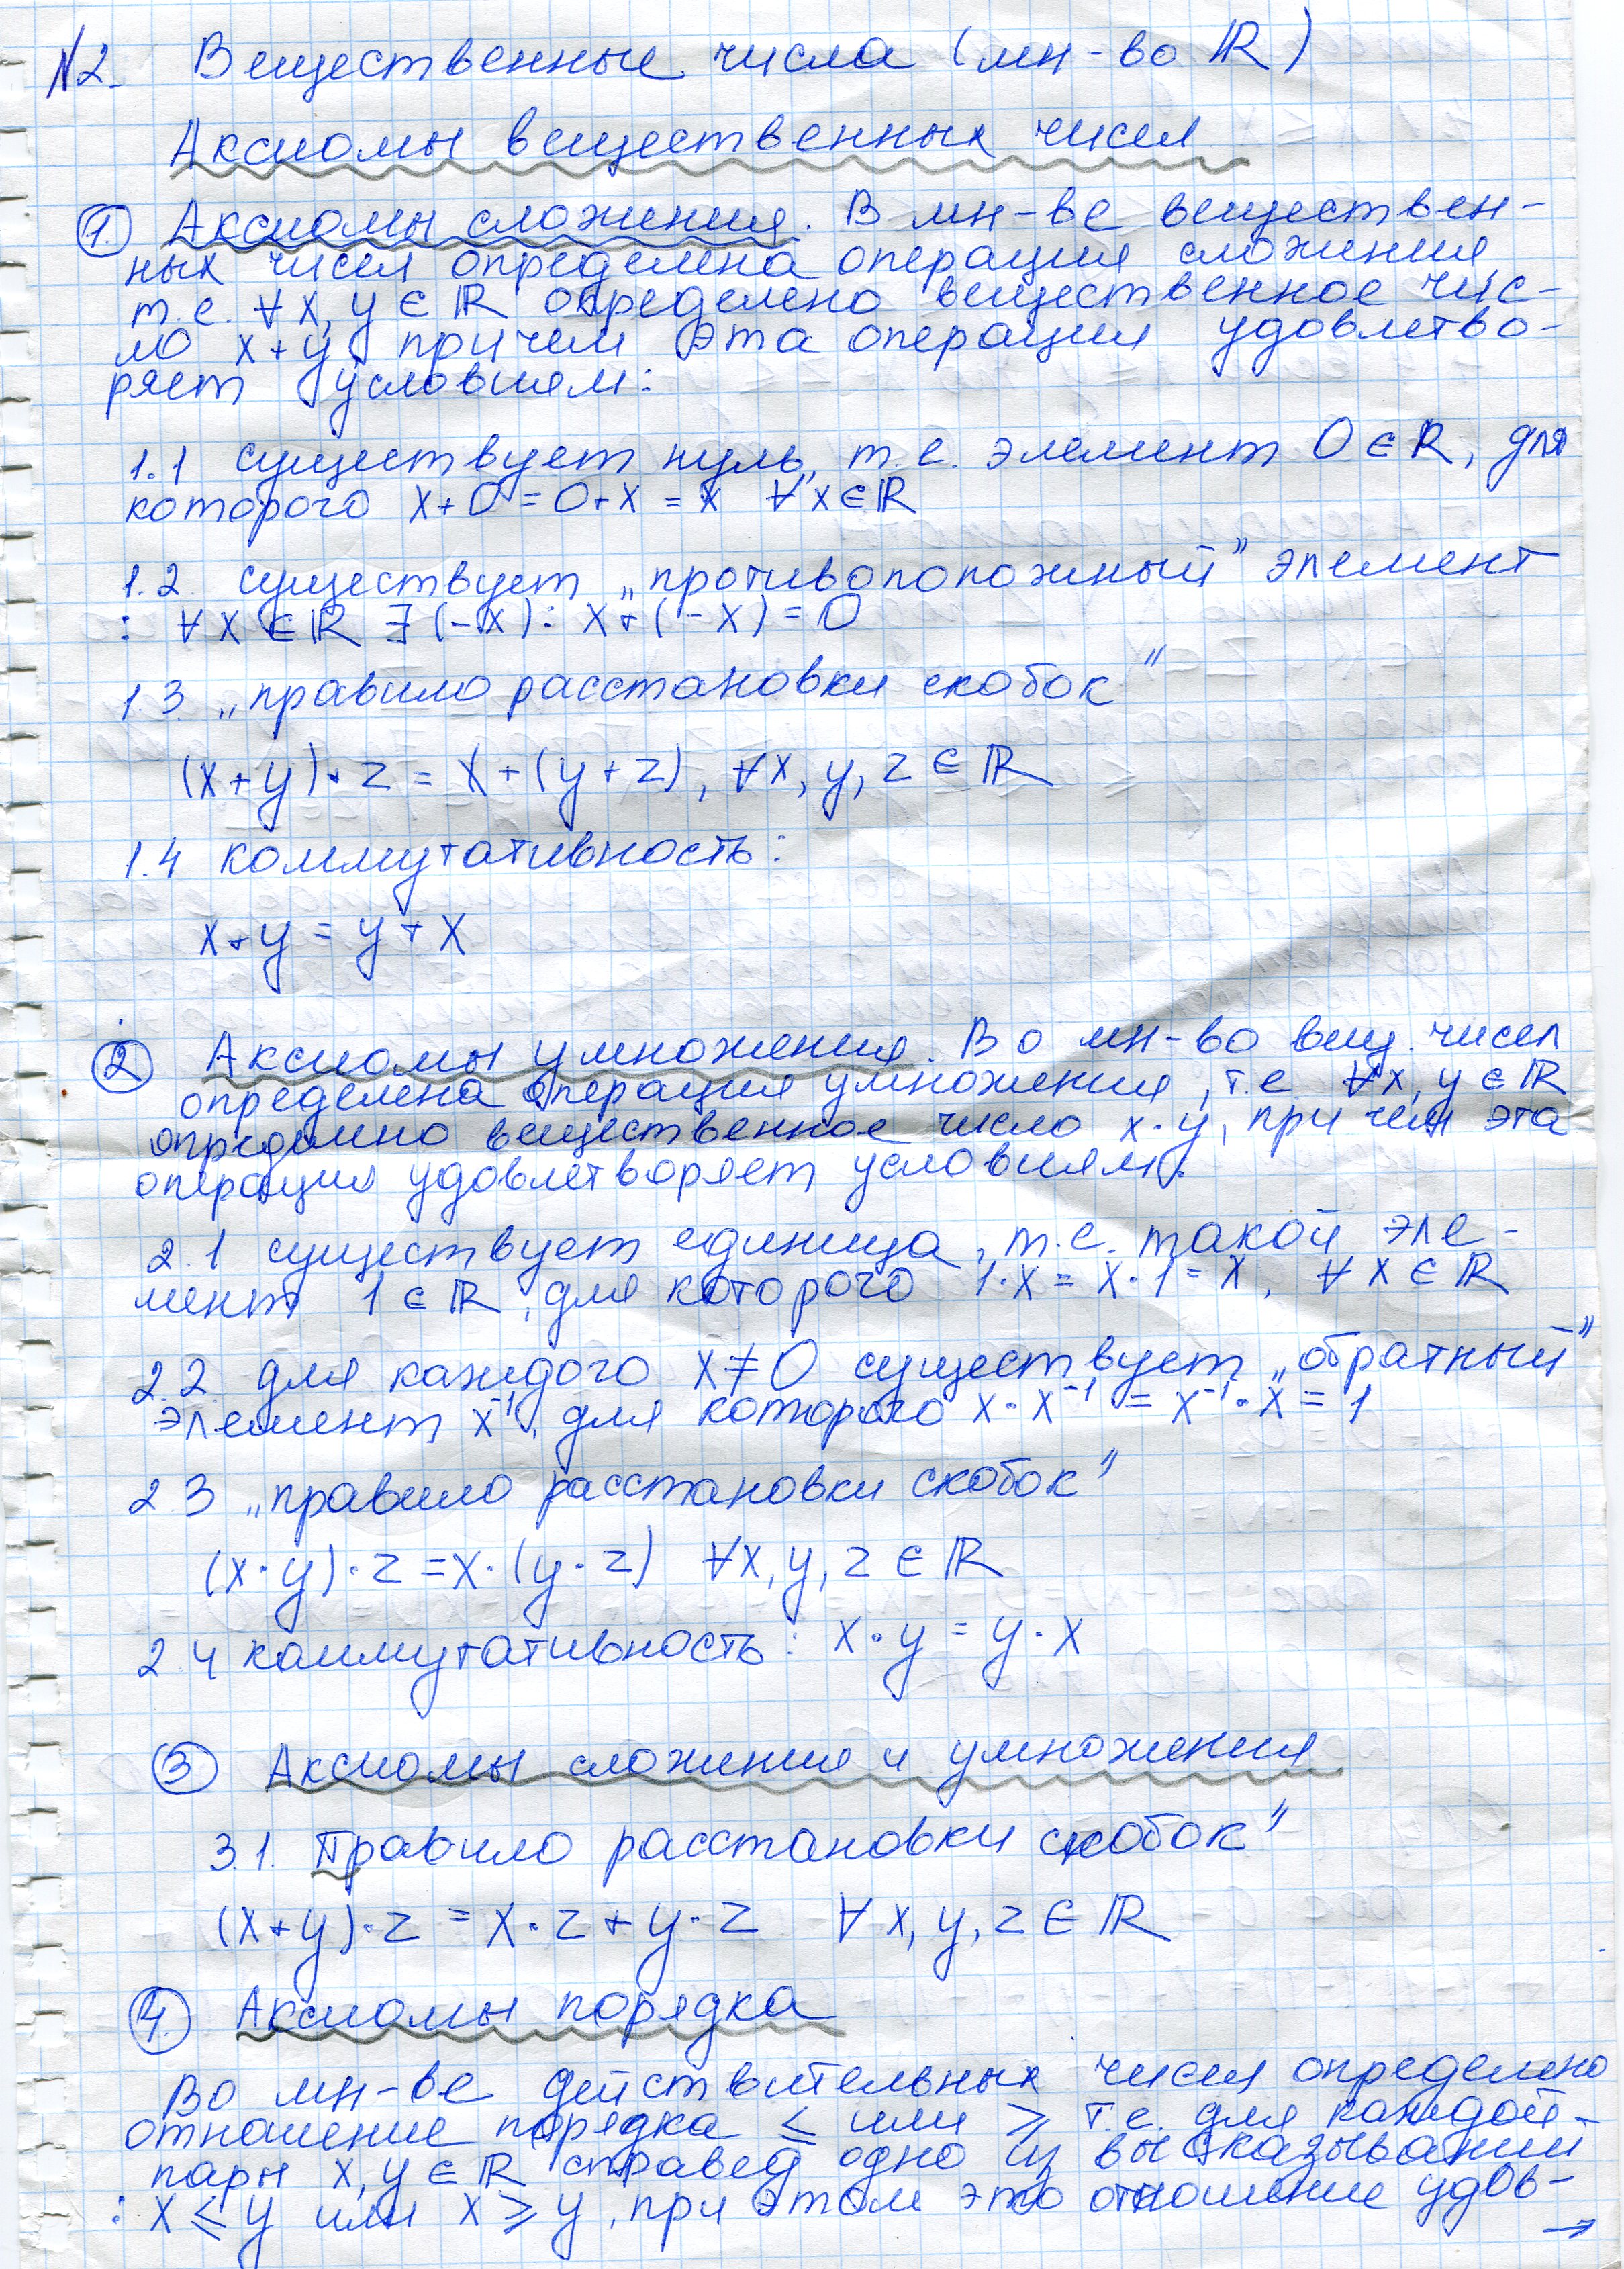 №2. Вещественные числа (мн-во ℝ)
Аксиомы вещественных чисел
1. Аксиомы сложения. В мн-ве веществен-
ных чисел определена операция сложения,
т.е. ∀x, y ∈ ℝ определено вещественное чис-
ло x+y, причем эта операция удовлетво-
ряет условиям:
1.1 существует нуль, т.е. элемент 0 ∈ ℝ, для
которого x+0=0+x=x ∀x∈ℝ
1.2. существует „противоположный" элемент
: ∀x∈ℝ ∃(-x): x+(-x)=0
1.3. „правило расстановки скобок"
(x+y)·z = x+(y+z), ∀x, y, z ∈ ℝ
1.4 коммутативность:
x+y = y+x
2 Аксиомы умножения. Во мн-во вещ. чисел
определена операция умножения, т.е. ∀x, y ∈ ℝ
определено вещественное число x·y, при чем эта
операция удовлетворяет условиям:
2.1 существует единица, т.е. такой эле-
мент 1 ∈ ℝ, для которого 1·x = x·1 = x, ∀x ∈ ℝ
2.2 для каждого x≠0 существует „обратный"
элемент x⁻¹, для которого x·x⁻¹ = x⁻¹·x = 1
2.3 „правило расстановки скобок"
(x·y)·z = x·(y·z) ∀x, y, z ∈ ℝ
2.4 коммутативность: x·y = y·x
3 Аксиомы сложения и умножения
3.1. Правило расстановки скобок"
(x+y)·z = x·z+y·z ∀x, y, z ∈ ℝ
4. Аксиомы порядка
Во мн-ве действительных чисел определено
отношение порядка ≤ или ≥ т.е. для каждой
пары x, y ∈ ℝ справед одно из высказываний
: x ≤ y или x ≥ y, при этом это отношение удов-
→